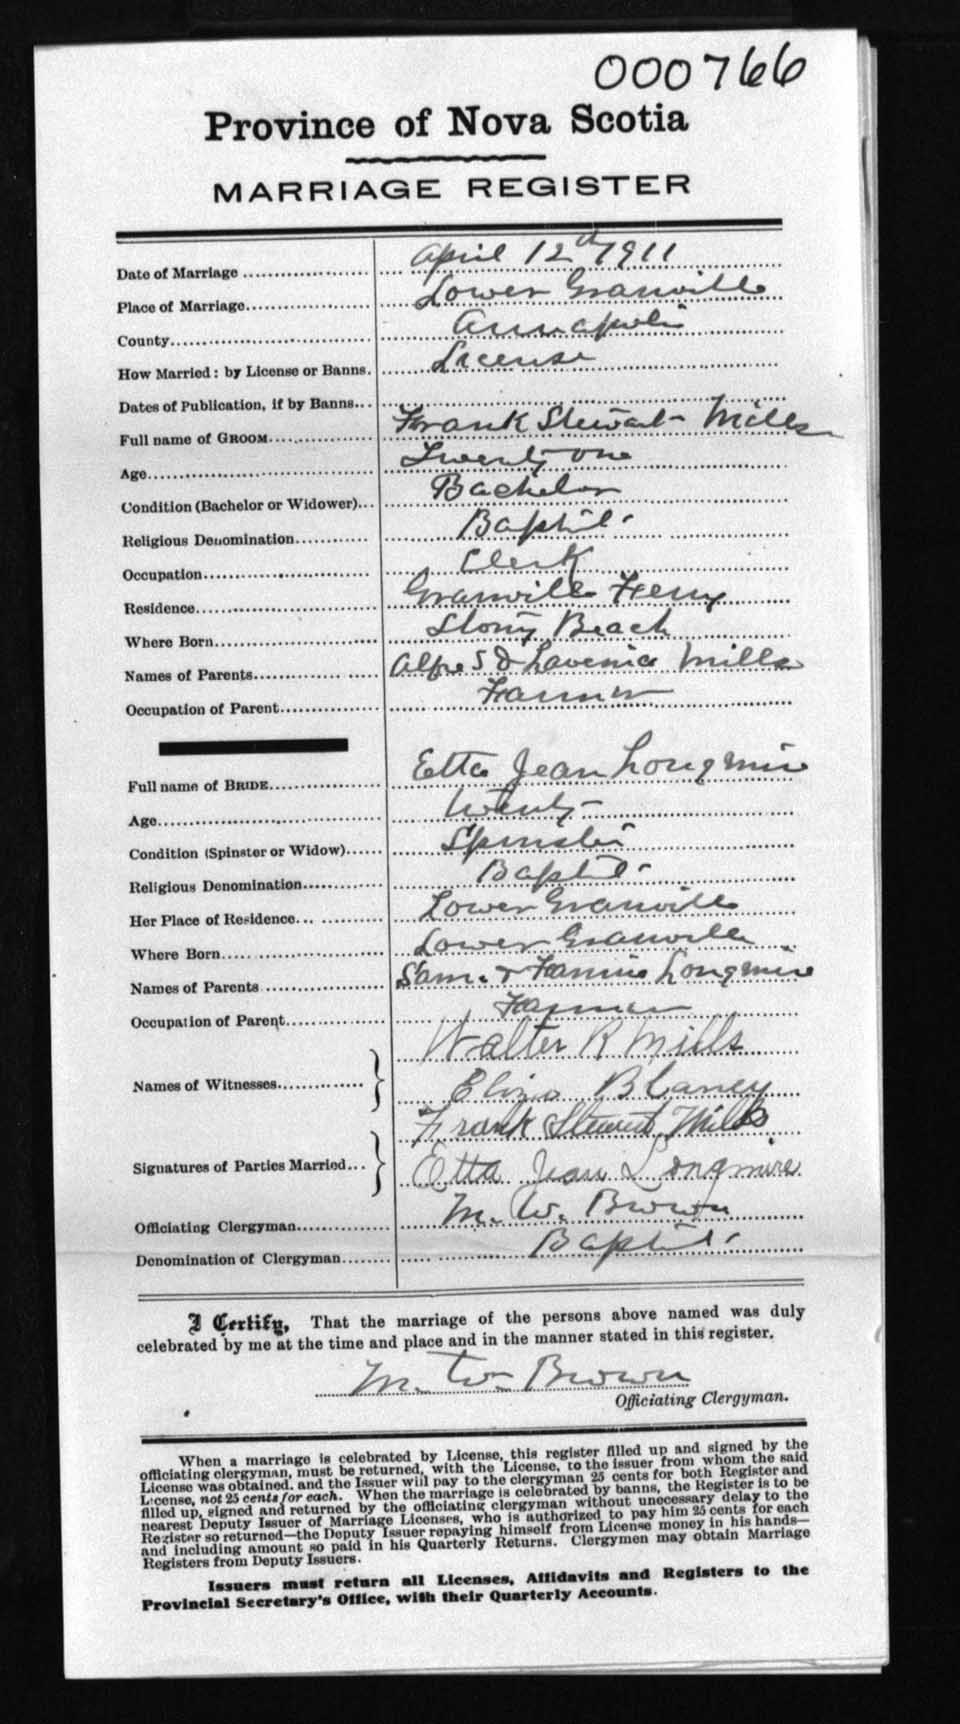 000766
Province of Nova Scotia
MARRIAGE REGISTER
Date of Marriage April 12th 1911
Place of Marriage Lower Granville
County Annapolis
How Married: by License or Banns. License
Dates of Publication, if by Banns
Full name of GROOM Frank Stewart Mills
Age Twenty one
Condition (Bachelor or Widower) Bachelor
Religious Denomination Baptist
Occupation Clerk
Residence Granville Ferry
Where Born Stony Beach
Names of Parents Alfre S & Lavenia Mills
Occupation of Parent Farmer
Full name of BRIDE Etta Jean Longmire
Age twenty
Condition (Spinster or Widow) Spinster
Religious Denomination Baptist
Her Place of Residence Lower Granville
Where Born Lower Granville
Names of Parents Sam. & Fannie Longmire
Occupation of Parent Farmer
Walter R Mills
Names of Witnesses Eliza Blaney
Frank Stewart Mills
Signatures of Parties Married Etta Jean Longmire
Officiating Clergyman M. W. Brown
Denomination of Clergyman Baptist
I Certify, That the marriage of the persons above named was duly
celebrated by me at the time and place and in the manner stated in this register.
M. W. Brown
Officiating Clergyman.
When a marriage is celebrated by License, this register filled up and signed by the
officiating clergyman, must be returned, with the License, to the issuer from whom the said
License was obtained, and the Issuer will pay to the clergyman 25 cents for both Register and
License, not 25 cents for each. When the marriage is celebrated by banns, the Register is to be
filled up, signed and returned by the officiating clergyman without unnecessary delay to the
nearest Deputy Issuer of Marriage Licenses, who is authorized to pay him 25 cents for each
Register so returned—the Deputy Issuer repaying himself from License money in his hands—
and including amount so paid in his Quarterly Returns. Clergymen may obtain Marriage
Registers from Deputy Issuers.
Issuers must return all Licenses, Affidavits and Registers to the
Provincial Secretary's Office, with their Quarterly Accounts.